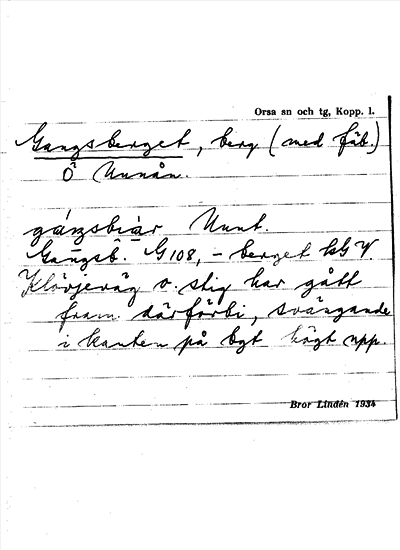 Orsa sn och tg, Kopp. l.
Gangsberget, berg (med fäb.)
Ö Unnån.
gángsbiàr Nunt.
Gangsb. G108, - berget kG V.
Klövjeväg o. stig har gått
fram därförbi, svängande
i kanten på bgt högt upp.
Bror Lindén 1934